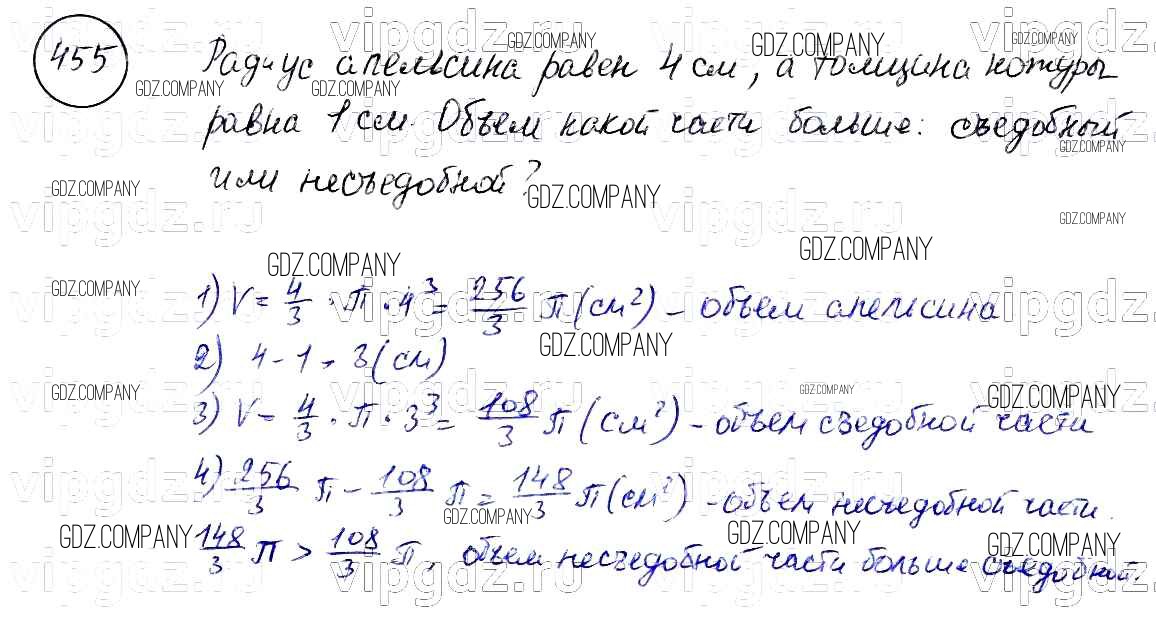 455
Радиус апельсина равен 4 см, а толщина кожуры
равна 1 см. Объем какой части больше: съедобный
или несъедобной?
1) V = 4/3 · π · 4³ = 256/3 π (см²) - объем апельсина
2) 4 - 1 = 3 (см)
3) V = 4/3 · π · 3³ = 108/3 π (см²) - объем съедобной части
4) 256/3 π - 108/3 π = 148/3 π (см²) - объем несъедобной части.
148/3 π > 108/3 π, объем несъедобной части больше съедобной.
vipgdz.ru
GDZ.COMPANY